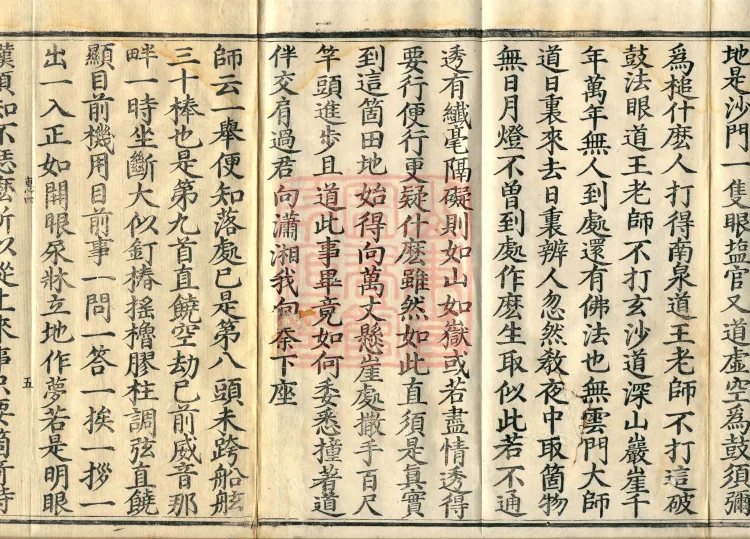 地是沙門一隻眼塩官又道虛空為鼓須彌
為槌什麽人打得南泉道王老師不打這破
鼓法眼道王老師不打玄沙道深山巖崖千
年萬年無人到處還有佛法也無雲門大師
道日裏來去日裏辨人忽然教夜中取箇物
無日月燈不曾到處作麽生取似此若不通
透有纎毫隔礙則如山如嶽或若盡情透得
要行便行更疑什麽雖然如此直須是真實
到這箇田地始得向萬丈懸崖處撒手百尺
竿頭進步且道此事畢竟如何委悉撞著道
伴交肩過君向瀟湘我向秦下座
師云一舉便知落處已是第八頭未跨船舷
三十棒也是第九首直饒空劫已前威音那
畔一時坐斷大似釘樁搖櫓膠柱調弦直饒
顯目前機用目前事一問一答一挨一拶一
出一入正如開眼尿牀立地作夢若是明眼
漢須知不恁麽所以從上來事只要箇奇特
五